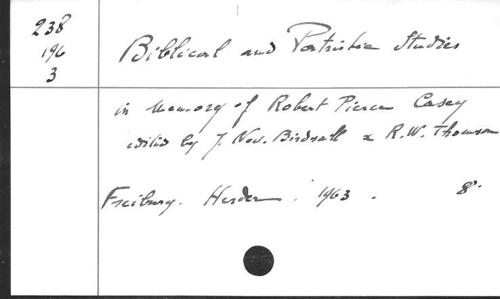 238
196
3
Biblical and Patristic Studies
in Memory of Robert Pierce Casey
edited by J. Nev. Birdsall & R.W. Thomson
Freiburg. Herder. 1963. 8°